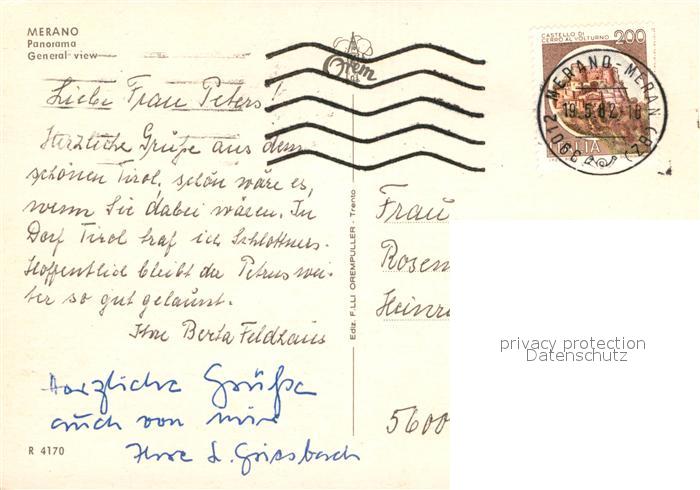 MERANO
Panorama
General view
Liebe Frau Peters!
Herzliche Grüße aus dem
schönen Tirol. schön wäre es,
wenn Sie dabei wären. In
Dorf Tirol traf ich Schlottners.
Hoffentlich bleibt der Petrus wei-
ter so gut gelaunt.
Ihre Berta Feldhaus
Herzliche Grüße
auch von mir
Ihre L. Griesbach
R 4170
Ediz. F.LLI OREMPULLER - Trento
Orem
CASTELLO DI
CERRO AL VOLTURNO
200
ITALIA
MERANO-MERAN (BZ)
19.5.82.-18
39012
Frau
Rosem
Heinr
5600
privacy protection
Datenschutz